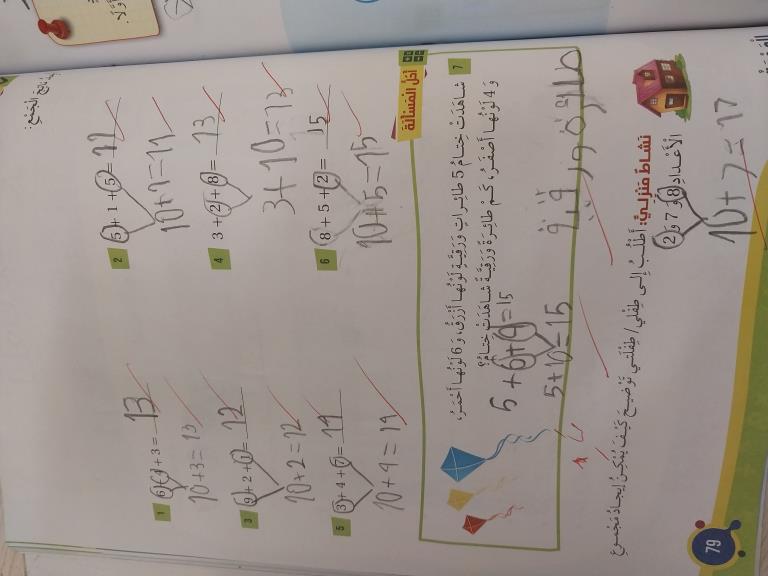 ناتج الجمع:
1 6 + 4 + 3 = 13
10+3=13
2 5 + 1 + 5 = 11
10+1=11
3 9 + 2 + 1 = 12
10+2=12
4 3 + 2 + 8 = 13
3+10=13
5 3 + 4 + 7 = 14
10+4=14
6 8 + 5 + 2 = 15
10+5=15
أحل المسألة
7 شَاهَدَتْ خِتَامُ 5 طَائِرَاتٍ وَرَقِيَّةٍ لَوْنُهَا أَزْرَقُ، وَ 6 لَوْنُهَا أَحْمَرُ،
وَ 4 لَوْنُهَا أَصْفَرُ، كَمْ طَائِرَةً وَرَقِيَّةً شَاهَدَتْ خِتَامُ؟
5+6+4=15
5+10=15 طائرة ورقية
نَشاطٌ مَنْزِلِيٌّ: أَطْلُبُ إِلى طِفْلي/ طِفْلَتي تَوْضيحَ كَيْفَ يُمْكِنُ إيجادُ مَجْموعِ
الْأَعْدادِ 8 وَ 7 وَ 2
10+7=17
79